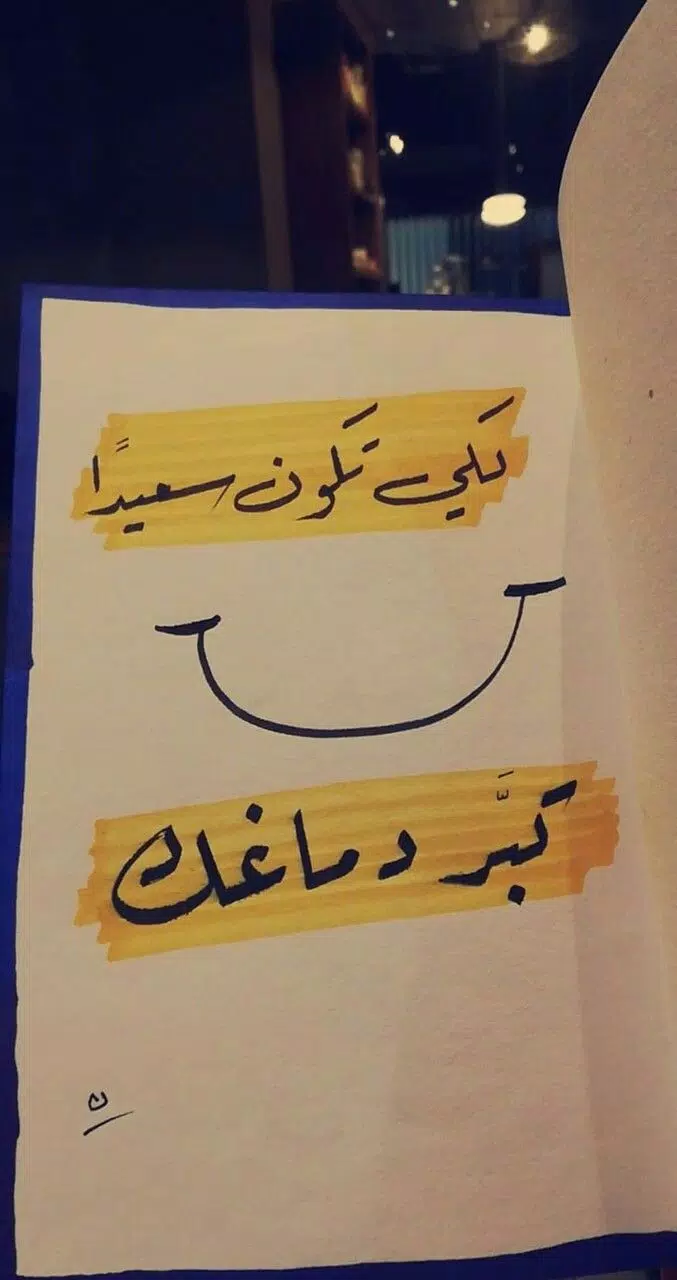 لكي تكون سعيدًا
كبَّر دماغك
ن